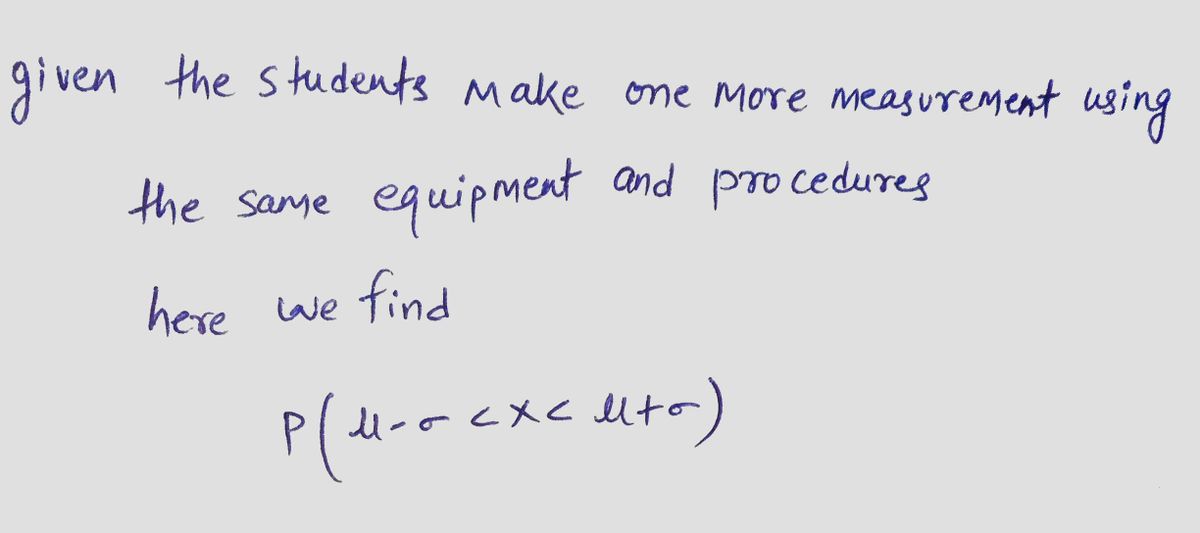 given the students make one more measurement using
the same equipment and procedures
here we find
P(μ-σ < x < μ+σ)